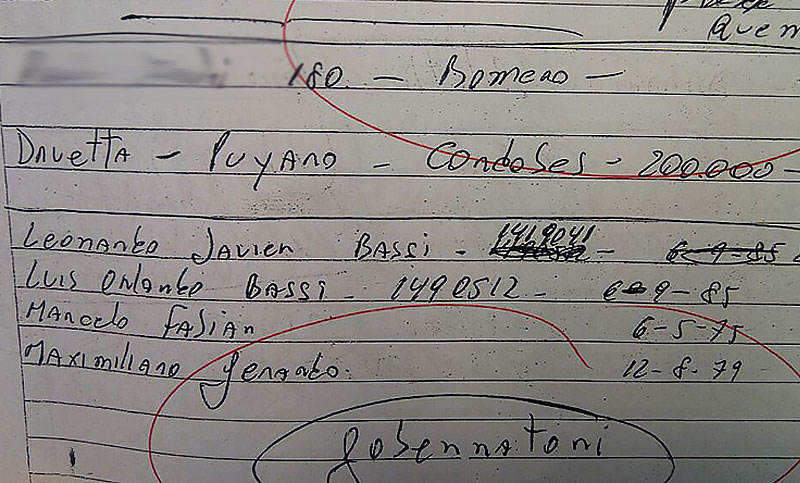 Quem
180. - Romero -
Druetta - Puyano - Cordobes - 200.000 -
Leonardo Javier BASSi - 1419041 - 6-9-85
Luis Orlando BASSi - 1490512 - 6-9-85
Marcelo Fabian 6-5-75
Maximiliano Gerardo. 12-8-79
gobernna.toni